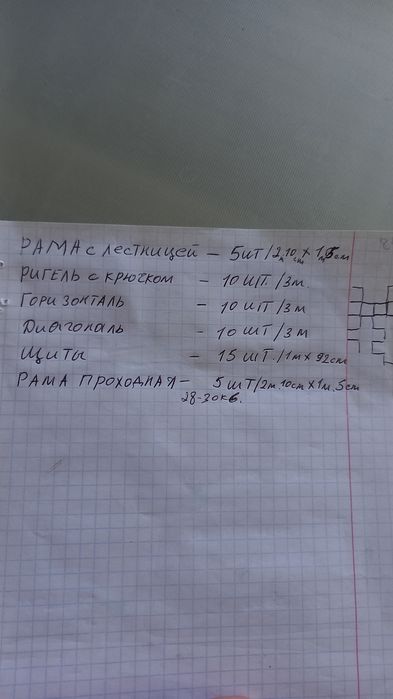 РАМА с лестницей – 5шт/2м10см х 1м5см
РИГЕЛЬ с крючком – 10 шт. /3м.
Горизонталь – 10 шт /3м
Диагональ – 10 шт /3м
Щиты – 15 шт./1мх92см
РАМА ПРОХОДНАЯ – 5 шт/2м10смх1м.5см
28-30кв.